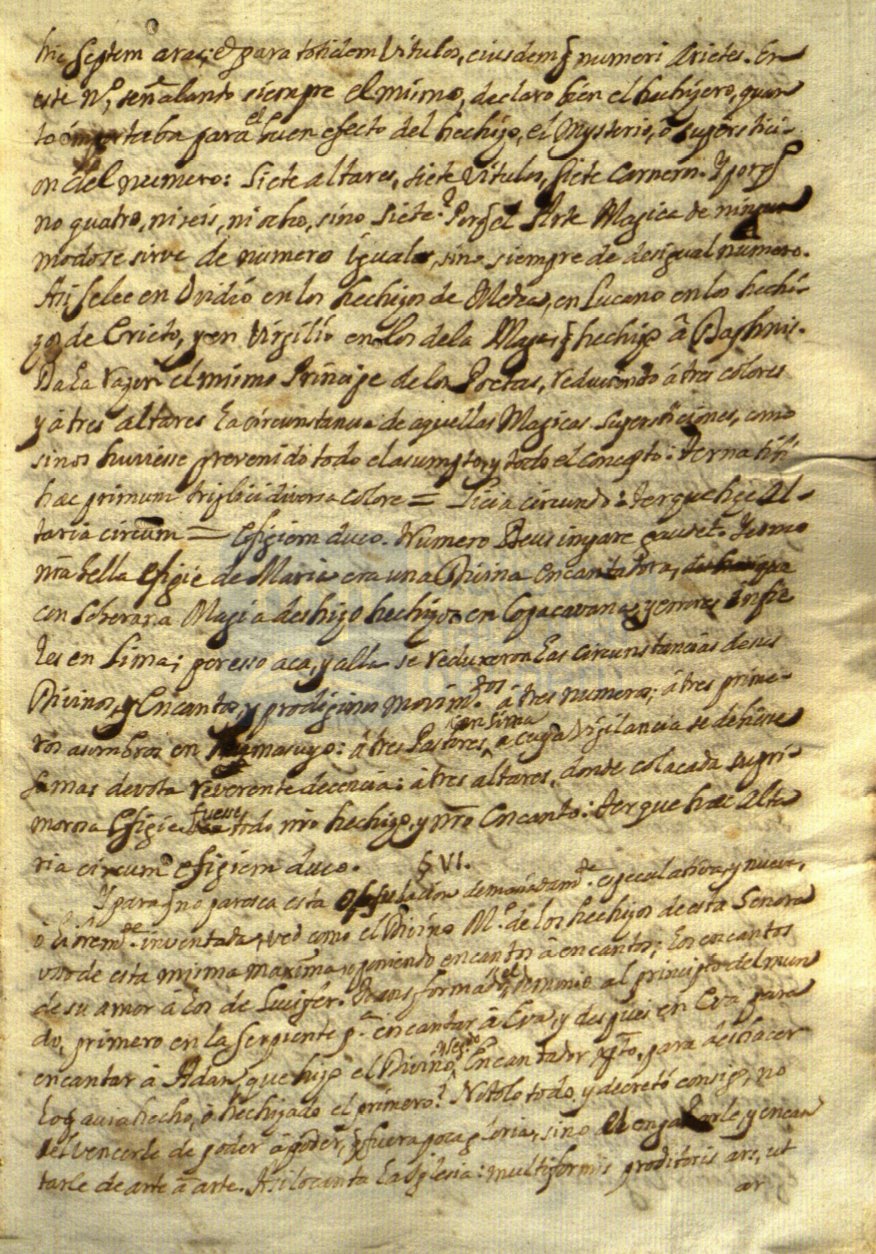 hic septem aras; et para totidem Vitulos, eiusdemq numeri Arietes. En
este Nº, señalando siempre el mismo, declaro bien el hechizero, quan
to importaba para el buen efecto del hechizo, el Mysterio, o supersticion
on del numero: Siete altares, siete Vitulos, siete Carneros. Y porq
no quatro, ni seis, ni ocho, sino siete? Porq el Arte Magica de ningun
modo se sirve de numero iguales, sino siempre de desigual numero.
Asi se lee en Ovidio en los hechizos de Medea, en Lucano en los hechi-
zos de Ericto, y en Virgilio en los de la Maga, q hechizo â Daphnis.
Da la razon el mismo Principe de los Poetas, reduciendo â tres colores
y â tres altares la circunstancia de aquellas Magicas supersticiones, como
si nos huviesse prevenido todo el asumpto, y todo el concepto: Terna tibi
hæc primum triplici diversa colore = Licia circundo: Terque hæc Al-
taria circum = Efigiem duco. Numero Deus impare gaudet. Y como
nra bella Efigie de Maria era una Divina Encantadora,
con soberana Magia deshizo hechizos en Copacavana, y errores Infie
les en Lima; por esso aca, y alla se reduxeron las circunstancias de sus
Divinos, y Encantos, y prodigiosos movim.tos â tres numeros; â tres prime-
ros asumbros en suyo: â tres Pastores, con Lima a cuya vigilancia se debiese
su mas devota reverente decencia: â tres altares, donde colocada su pri-
morosa Efigie fuesse todo nro hechizo, y nro Encanto: Terque hæc Alta
ria circum efigiem duco. § VI.
Y para q no paresca esta demasiadam.te especulativa, y nueva,
ô inventada, ved como el Divino M.e de los hechizos de esta Señora
uso de esta misma maxima oponiendo encantos â encantos; los encantos
de su amor â los de Lusifer. Transformado el Demonio al principio del mun
do, primero en la Serpiente p.a encantar â Eva, y despues en Eva para
encantar â Adan, que hizo el Divino Encantador xpto, para deshacer
lo q avia hecho, ô hechizado el primero? Notolo todo, y decretó consigo, no
el vencerle de poder â poder, q fuera poca gloria, sino el engañarle, y encan
tarle de arte â arte. Asi lo canta la Iglesia: multiformis proditoris ars, ut
ar